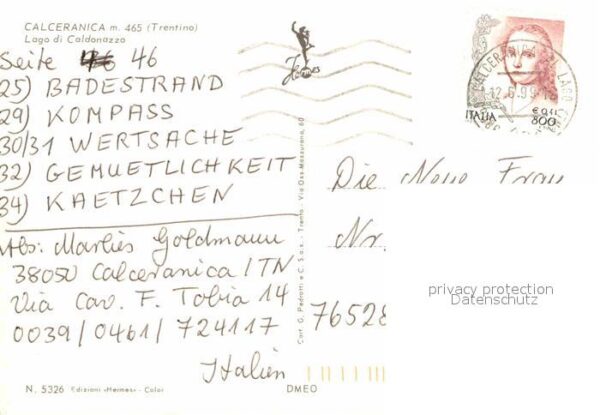 CALCERANICA m. 465 (Trentino)
Lago di Caldonazzo
Seite 46
25) BADESTRAND
29) KOMPASS
30/31 WERTSACHE
32) GEMUETLICHKEIT
34) KAETZCHEN
Abs: Marlies Goldmann
38050 Calceranica / TN
Via Cav. F. Tobia 14
0039 / 0461 / 724117
Italien
N. 5326 Edizioni «Hermes» - Color
DMEO
Cart. G. Pedrotti e C. S.a.s. - Trento - Via Oss Mazzurana, 60
Hermes
ITALIA
€ 0,41
800
12.6.99
Die Neue Frau
Nr.
76528
privacy protection
Datenschutz